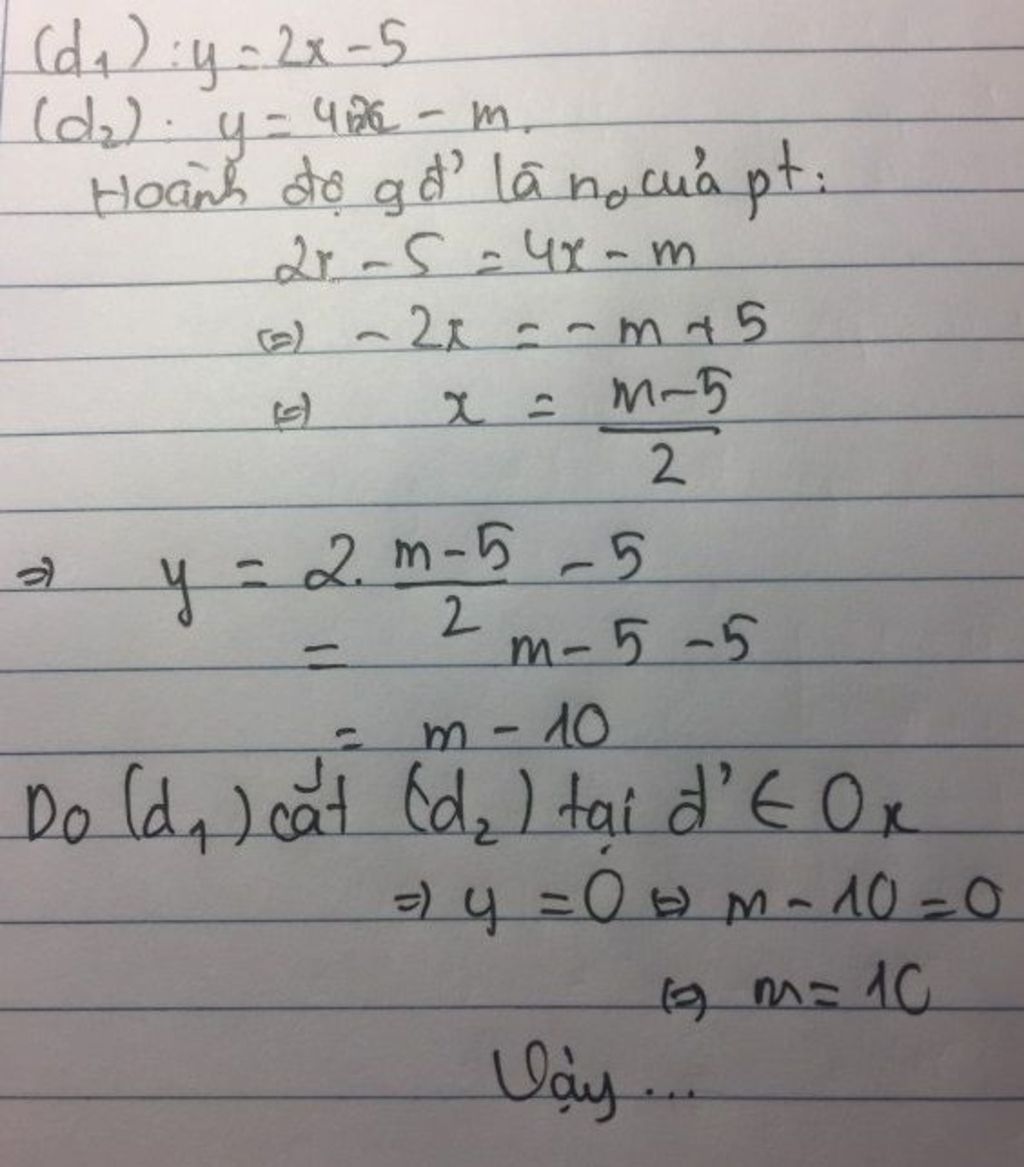 (d₁): y = 2x - 5
(d₂): y = 4x - m.
Hoành độ gđ' là n₀ của pt:
2x - 5 = 4x - m
(=) - 2x = - m + 5
(=) x = (m-5)/2
=) y = 2. (m-5)/2 - 5
= m - 5 - 5
= m - 10
Do (d₁) cắt (d₂) tại đ' ∈ Ox
=) y = 0 (=) m - 10 = 0
(=) m = 10
Vậy ...